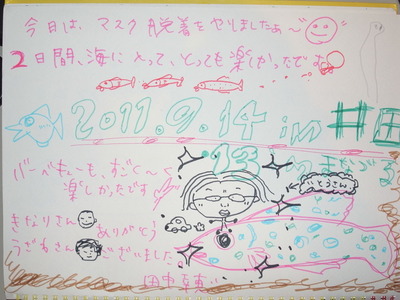 今日は、マスク脱着をやりましたぁ〜
2日間、海にとって、とっても楽しかったです
2011.9.14 in 井田
バーベキューも、すごく〜く
楽しかったです
いとうさん
きなりさん
ありがとう
うざねさん
ございました
田中